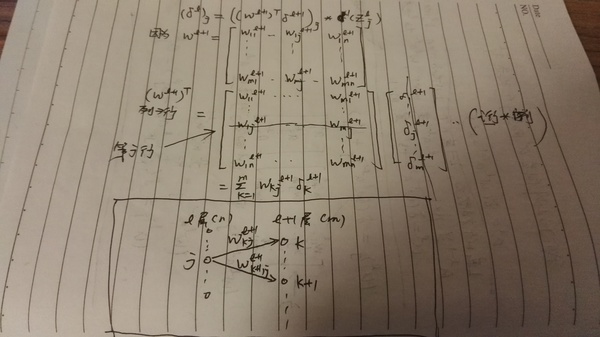 (δ^l)_j = ((w^{l+1})^T δ^{l+1})_j * σ'(z_j^l)
因为 w^{l+1} = [ w_{11}^{l+1} … w_{1j}^{l+1} … w_{1n}^{l+1} ; ⋮ ; w_{m1}^{l+1} … w_{mj}^{l+1} … w_{mn}^{l+1} ]
(w^{l+1})^T = [ w_{11}^{l+1} … w_{m1}^{l+1} ; ⋮ ; w_{1j}^{l+1} … w_{mj}^{l+1} ; ⋮ ; w_{1n}^{l+1} … w_{mn}^{l+1} ] [ δ_1^{l+1} ; ⋮ ; δ_j^{l+1} ; ⋮ ; δ_m^{l+1} ]
第j行
= Σ_{k=1}^{m} w_{kj}^{l+1} δ_k^{l+1}
l层(n) l+1层(m)
w_{kj}^{l+1} k
j
w_{k+1j}^{l+1} k+1
Date
NO.